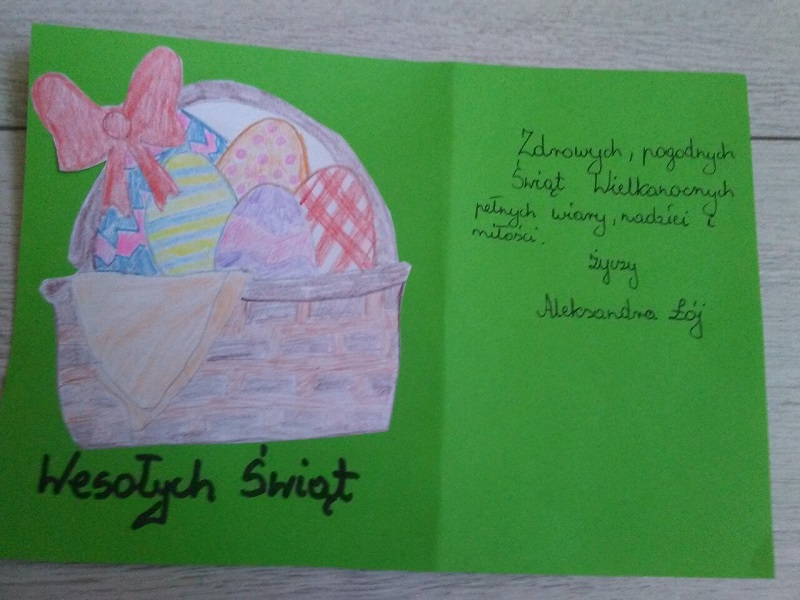 Wesołych Świąt
Zdrowych, pogodnych
Świąt Wielkanocnych
pełnych wiary, nadziei i
miłości.
życzy
Aleksandra Łój